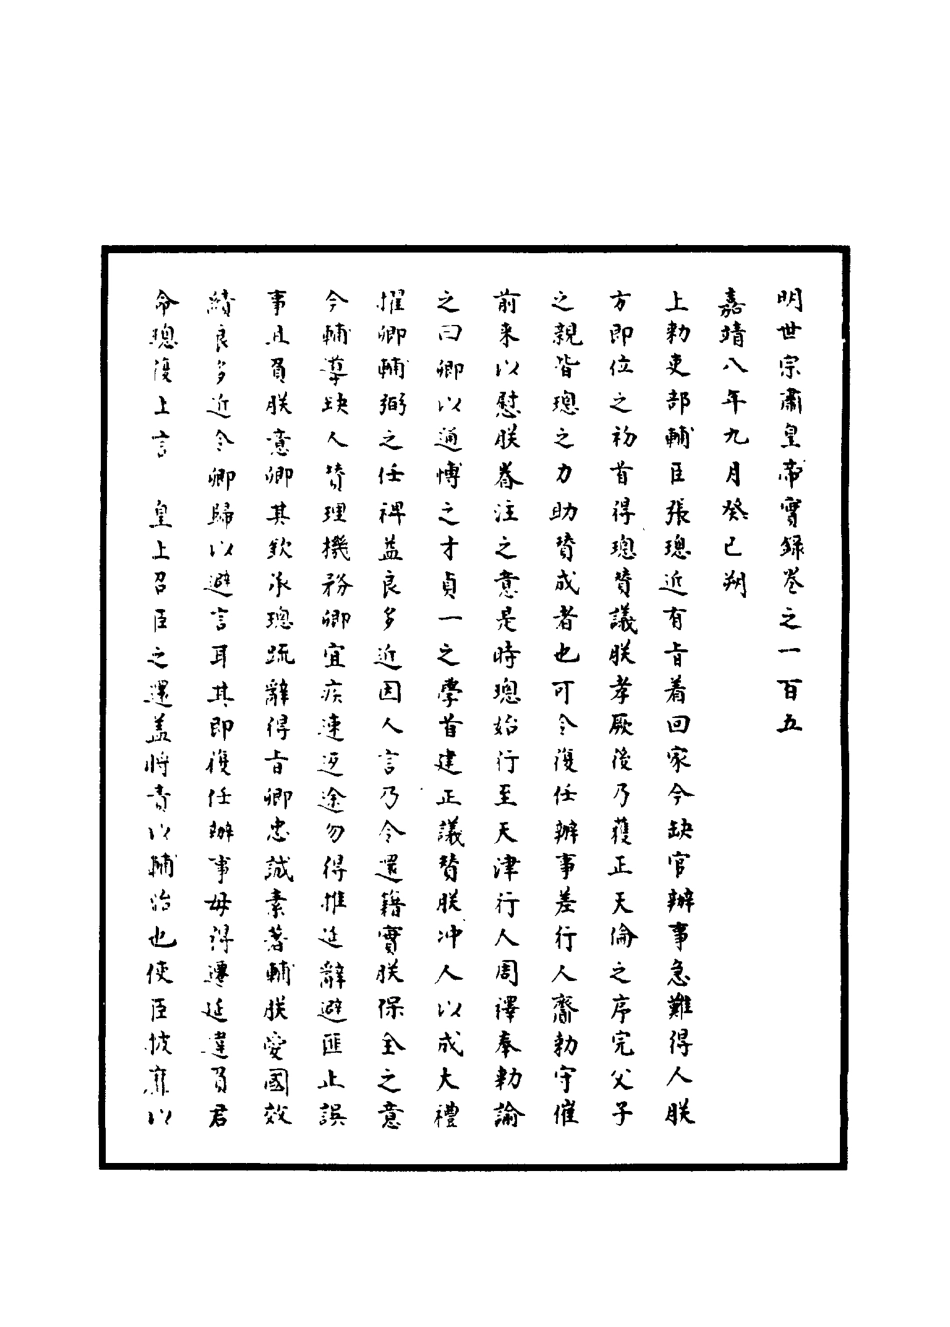 明世宗肅皇帝實錄卷之一百五
嘉靖八年九月癸巳朔
上勑吏部輔臣張璁近有旨着回家今缺官辦事急難得人朕
方即位之初首得璁贊議朕孝厥後乃獲正天倫之序完父子
之親皆璁之力助贊成者也可令復任辦事差行人齎勑守催
前来以慰朕眷注之意是時璁始行至天津行人周禪奉勑諭
之曰卿以通博之才貞一之學首建正議贊朕冲人以成大禮
擢卿輔弼之任裨益良多近因人言乃令還籍實朕保全之意
今輔導缺人贊理機務卿宜疾速返途勿得推延辭避匪止誤
事且負朕意卿其欽承璁疏辭得旨卿忠誠素著輔朕愛國效
績良多近令卿歸以避言耳其即復任辦事毋得遷延違負君
命璁復上言　皇上召臣之還盖將責以輔治也使臣披靡以